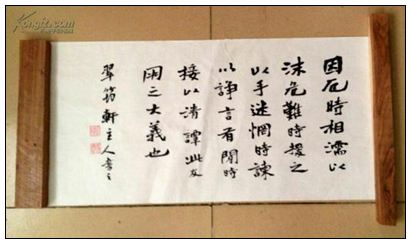 Kongfz.com
困厄時相濡以
沫危難時援之
以手迷惘時諫
以諍言有閒時
接以清譚此友
朋之大義也
翠筠軒主人書之